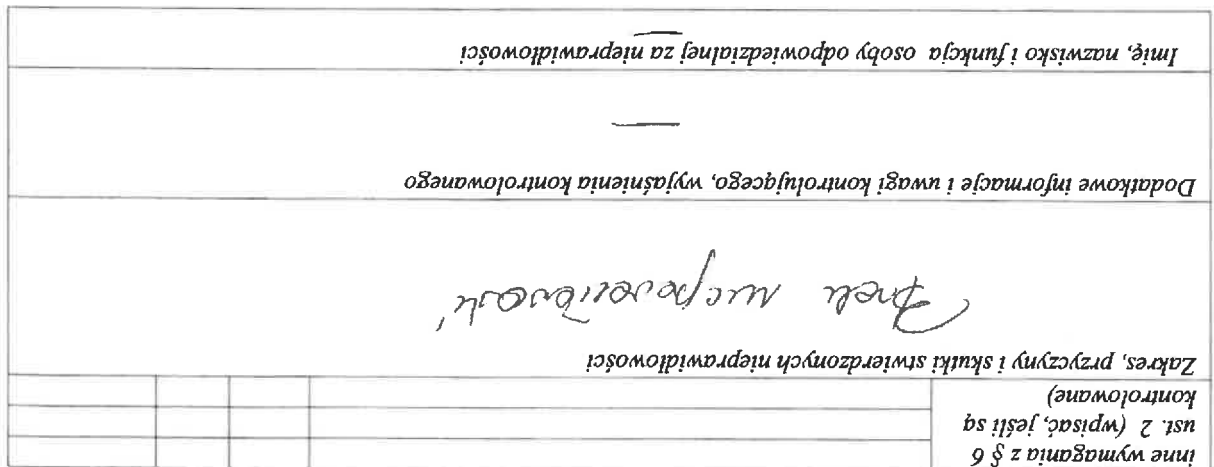 inne wymagania z § 6
ust. 2 (wpisać, jeśli są
kontrolowane)
Zakres, przyczyny i skutki stwierdzonych nieprawidłowości
Brak nieprawidłowości
Dodatkowe informacje i uwagi kontrolującego, wyjaśnienia kontrolowanego
—
Imię, nazwisko i funkcja osoby odpowiedzialnej za nieprawidłowości
—